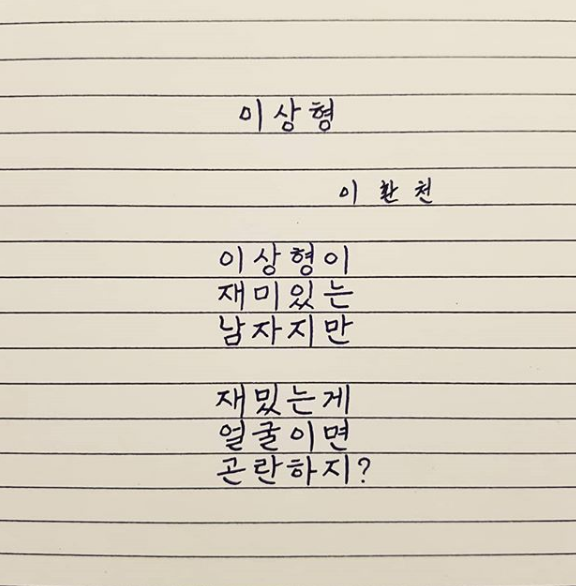 이상형
이환천
이상형이
재미있는
남자지만
재밌는게
얼굴이면
곤란하지?